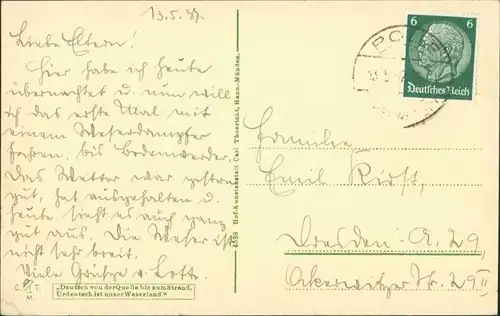 13.5.37.
Liebe Eltern!
Hier habe ich heute
übernachtet u. nun will
ich das erste Mal mit
einem Weserdampfer
fahren, bis Bodenwerder.
Das Wetter war gestern
gut, hat ausgehalten u.
heute sieht es auch ganz
gut aus. Die Weser ist
nicht sehr breit.
Viele Grüße v. Lotte.
C. T.
M.
„Deutsch von der Quelle bis zum Strand,
Urdeutsch ist unser Weserland."
4358 Hof-Kunstanstalt Carl Thoericht, Hann.-Münden.
6 6
Deutsches Reich
Familie
Emil Kirst,
Dresden A. 29,
Ockerwitzer Str. 29 II